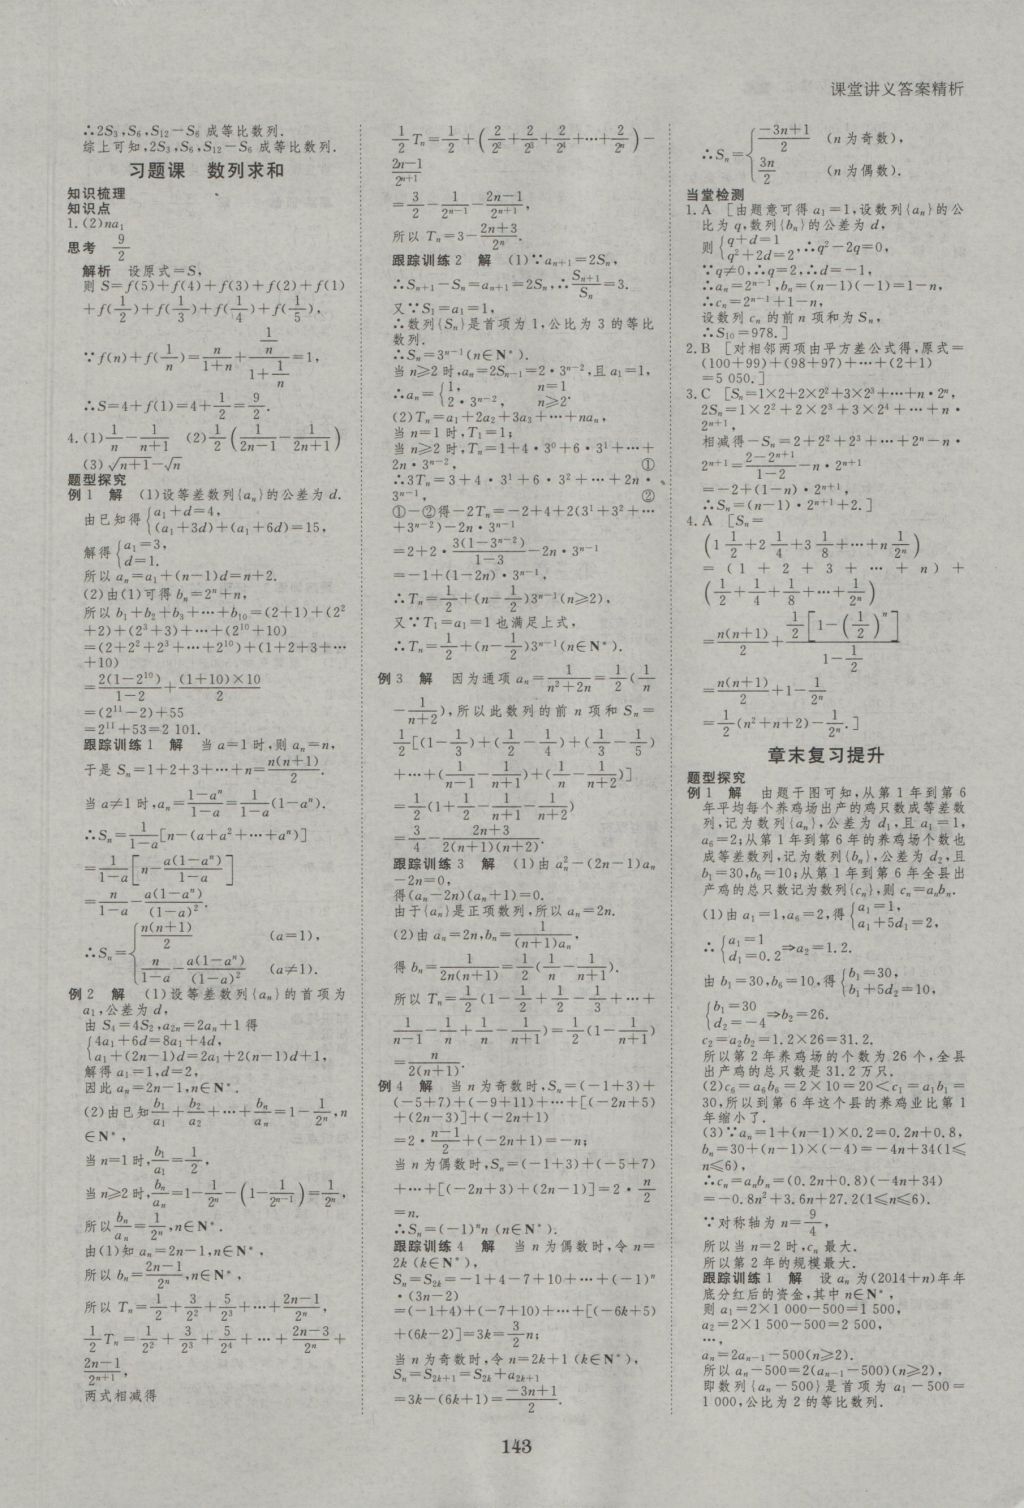 课堂讲义答案精析
∴2S₃,S₆,S₁₂－S₆ 成等比数列.
综上可知,2S₃,S₆,S₁₂－S₆ 成等比数列.
习题课　数列求和
知识梳理
知识点
1.(2)na₁
思考　9/2
解析　设原式＝S,
则 S＝f(5)＋f(4)＋f(3)＋f(2)＋f(1)
＋f(1/2)＋f(1/3)＋f(1/4)＋f(1/5),
∵f(n)＋f(1/n)＝n/(1＋n)＋(1/n)/(1＋1/n)＝1,
∴S＝4＋f(1)＝4＋1/2＝9/2.
4.(1)1/n－1/(n＋1)　(2)1/2(1/(2n－1)－1/(2n＋1))
(3)√(n＋1)－√n
题型探究
例 1　解　(1)设等差数列{aₙ}的公差为 d.
由已知得{a₁＋d＝4,
(a₁＋3d)＋(a₁＋6d)＝15,
解得{a₁＝3,
d＝1.
所以 aₙ＝a₁＋(n－1)d＝n＋2.
(2)由(1)可得 bₙ＝2ⁿ＋n,
所以 b₁＋b₂＋b₃＋…＋b₁₀＝(2＋1)＋(2²
＋2)＋(2³＋3)＋…＋(2¹⁰＋10)
＝(2＋2²＋2³＋…＋2¹⁰)＋(1＋2＋3＋…
＋10)
＝2(1－2¹⁰)/(1－2)＋(1＋10)×10/2
＝(2¹¹－2)＋55
＝2¹¹＋53＝2 101.
跟踪训练 1　解　当 a＝1 时,则 aₙ＝n,
于是 Sₙ＝1＋2＋3＋…＋n＝n(n＋1)/2.
当 a≠1 时,aₙ＝(1－aⁿ)/(1－a)＝1/(1－a)(1－aⁿ).
∴Sₙ＝1/(1－a)[n－(a＋a²＋…＋aⁿ)]
＝1/(1－a)[n－a(1－aⁿ)/(1－a)]
＝n/(1－a)－a(1－aⁿ)/(1－a)².
∴Sₙ＝{n(n＋1)/2　(a＝1),
n/(1－a)－a(1－aⁿ)/(1－a)²　(a≠1).
例 2　解　(1)设等差数列{aₙ}的首项为
a₁,公差为 d,
由 S₄＝4S₂,a₂ₙ＝2aₙ＋1 得
{4a₁＋6d＝8a₁＋4d,
a₁＋(2n－1)d＝2a₁＋2(n－1)d＋1,
解得 a₁＝1,d＝2,
因此 aₙ＝2n－1,n∈N*.
(2)由已知b₁/a₁＋b₂/a₂＋…＋bₙ/aₙ＝1－1/2ⁿ,n
∈N*,
当 n＝1 时,b₁/a₁＝1/2,
当 n≥2 时,bₙ/aₙ＝1－1/2ⁿ－(1－1/2ⁿ⁻¹)＝1/2ⁿ,
所以bₙ/aₙ＝1/2ⁿ,n∈N*.
由(1)知 aₙ＝2n－1,n∈N*,
所以 bₙ＝(2n－1)/2ⁿ,n∈N*,
所以 Tₙ＝1/2＋3/2²＋5/2³＋…＋(2n－1)/2ⁿ,
1/2 Tₙ＝1/2²＋3/2³＋5/2⁴＋…＋(2n－3)/2ⁿ＋
(2n－1)/2ⁿ⁺¹,
两式相减得
1/2 Tₙ＝1/2＋(2/2²＋2/2³＋2/2⁴＋…＋2/2ⁿ)－
(2n－1)/2ⁿ⁺¹
＝3/2－1/2ⁿ⁻¹－(2n－1)/2ⁿ⁺¹,
所以 Tₙ＝3－(2n＋3)/2ⁿ.
跟踪训练 2　解　(1)∵aₙ₊₁＝2Sₙ,
∴Sₙ₊₁－Sₙ＝aₙ₊₁＝2Sₙ,∴Sₙ₊₁/Sₙ＝3.
又∵S₁＝a₁＝1,
∴数列{Sₙ}是首项为 1,公比为 3 的等比
数列.
∴Sₙ＝3ⁿ⁻¹(n∈N*).
当 n≥2 时,aₙ＝2Sₙ₋₁＝2·3ⁿ⁻²,且 a₁＝1,
∴aₙ＝{1,　n＝1
2·3ⁿ⁻²,　n≥2.
(2)Tₙ＝a₁＋2a₂＋3a₃＋…＋naₙ,
当 n＝1 时,T₁＝1;
当 n≥2 时,Tₙ＝1＋4·3⁰＋6·3¹＋…＋
2n·3ⁿ⁻²,　①
∴3Tₙ＝3＋4·3¹＋6·3²＋…＋2n·
3ⁿ⁻¹,　②
①－②得－2Tₙ＝－2＋4＋2(3¹＋3²＋…
＋3ⁿ⁻²)－2n·3ⁿ⁻¹
＝2＋2·3(1－3ⁿ⁻²)/(1－3)－2n·3ⁿ⁻¹
＝－1＋(1－2n)·3ⁿ⁻¹,
∴Tₙ＝1/2＋(n－1/2)3ⁿ⁻¹(n≥2),
又∵T₁＝a₁＝1 也满足上式,
∴Tₙ＝1/2＋(n－1/2)3ⁿ⁻¹(n∈N*).
例 3　解　因为通项 aₙ＝1/(n²＋2n)＝1/2(1/n
－1/(n＋2)),所以此数列的前 n 项和 Sₙ＝
1/2[(1－1/3)＋(1/2－1/4)＋(1/3－1/5)
＋…＋(1/(n－1)－1/(n＋1))＋(1/n－1/(n＋2))]
＝1/2(1＋1/2－1/(n＋1)－1/(n＋2))
＝3/4－(2n＋3)/(2(n＋1)(n＋2)).
跟踪训练 3　解　(1)由 aₙ²－(2n－1)aₙ
－2n＝0,
得(aₙ－2n)(aₙ＋1)＝0.
由于{aₙ}是正项数列,所以 aₙ＝2n.
(2)由 aₙ＝2n,bₙ＝1/((n＋1)aₙ),
得 bₙ＝1/(2n(n＋1))＝1/2(1/n－1/(n＋1)).
所以 Tₙ＝1/2(1－1/2＋1/2－1/3＋…＋
1/(n－1)－1/n＋1/n－1/(n＋1))＝1/2(1－1/(n＋1))
＝n/(2(n＋1)).
例 4　解　当 n 为奇数时,Sₙ＝(－1＋3)＋
(－5＋7)＋(－9＋11)＋…＋[(－2n＋5)
＋(2n－3)]＋(－2n＋1)
＝2·(n－1)/2＋(－2n＋1)＝－n;
当 n 为偶数时,Sₙ＝(－1＋3)＋(－5＋7)
＋…＋[(－2n＋3)＋(2n－1)]＝2·n/2
＝n.
∴Sₙ＝(－1)ⁿn (n∈N*).
跟踪训练 4　解　当 n 为偶数时,令 n＝
2k (k∈N*),
Sₙ＝S₂ₖ＝－1＋4－7＋10＋…＋(－1)ⁿ
·(3n－2)
＝(－1＋4)＋(－7＋10)＋…＋[(－6k＋5)
＋(6k－2)]＝3k＝3/2 n;
当 n 为奇数时,令 n＝2k＋1 (k∈N*),
Sₙ＝S₂ₖ₊₁＝S₂ₖ＋a₂ₖ₊₁
＝3k－(6k＋1)＝(－3n＋1)/2.
∴Sₙ＝{(－3n＋1)/2　(n 为奇数),
3n/2　(n 为偶数).
当堂检测
1.A　[由题意可得 a₁＝1,设数列{aₙ}的公
比为 q,数列{bₙ}的公差为 d,
则{q＋d＝1
q²＋2d＝2,∴q²－2q＝0,
∵q≠0,∴q＝2,∴d＝－1,
∴aₙ＝2ⁿ⁻¹,bₙ＝(n－1)(－1)＝1－n,
∴cₙ＝2ⁿ⁻¹＋1－n,
设数列 cₙ 的前 n 项和为 Sₙ,
∴S₁₀＝978.]
2.B　[对相邻两项由平方差公式得,原式＝
(100＋99)＋(98＋97)＋…＋(2＋1)
＝5 050.]
3.C　[Sₙ＝1×2＋2×2²＋3×2³＋…＋n·2ⁿ,
2Sₙ＝1×2²＋2×2³＋3×2⁴＋…＋n·
2ⁿ⁺¹,
相减得－Sₙ＝2＋2²＋2³＋…＋2ⁿ－n·
2ⁿ⁺¹＝(2－2ⁿ⁺¹)/(1－2)－n·2ⁿ⁺¹
＝－2＋(1－n)·2ⁿ⁺¹,
∴Sₙ＝(n－1)·2ⁿ⁺¹＋2.]
4.A　[Sₙ＝
(1 1/2＋2 1/4＋3 1/8＋…＋n 1/2ⁿ)
＝(1＋2＋3＋…＋n)＋
(1/2＋1/4＋1/8＋…＋1/2ⁿ)
＝n(n＋1)/2＋1/2[1－(1/2)ⁿ]/(1－1/2)
＝n(n＋1)/2＋1－1/2ⁿ
＝1/2(n²＋n＋2)－1/2ⁿ.]
章末复习提升
题型探究
例 1　解　由题干图可知,从第 1 年到第 6
年平均每个养鸡场出产的鸡只数成等差数
列,记为数列{aₙ},公差为 d₁,且 a₁＝1,
a₆＝2;从第 1 年到第 6 年的养鸡场个数也
成等差数列,记为数列{bₙ},公差为 d₂,且
b₁＝30,b₆＝10;从第 1 年到第 6 年全县出
产鸡的总只数记为数列{cₙ},则 cₙ＝aₙbₙ.
(1)由 a₁＝1,a₆＝2,得{a₁＝1,
a₁＋5d₁＝2,
∴{a₁＝1
d₁＝0.2⇒a₂＝1.2.
由 b₁＝30,b₆＝10,得{b₁＝30,
b₁＋5d₂＝10,
{b₁＝30
d₂＝－4⇒b₂＝26.
c₂＝a₂b₂＝1.2×26＝31.2.
所以第 2 年养鸡场的个数为 26 个,全县
出产鸡的总只数是 31.2 万只.
(2)c₆＝a₆b₆＝2×10＝20＜c₁＝a₁b₁＝
30,所以到第 6 年这个县的养鸡业比第 1
年缩小了.
(3)∵aₙ＝1＋(n－1)×0.2＝0.2n＋0.8,
bₙ＝30＋(n－1)×(－4)＝－4n＋34(1≤
n≤6),
∴cₙ＝aₙbₙ＝(0.2n＋0.8)(－4n＋34)
＝－0.8n²＋3.6n＋27.2(1≤n≤6).
∵对称轴为 n＝9/4,
所以当 n＝2 时,cₙ 最大.
所以第 2 年的规模最大.
跟踪训练 1　解　设 aₙ 为(2014＋n)年年
底分红后的资金,其中 n∈N*,
则 a₁＝2×1 000－500＝1 500,
a₂＝2×1 500－500＝2 500,
…,
aₙ＝2aₙ₋₁－500(n≥2).
所以 aₙ－500＝2(aₙ₋₁－500)(n≥2),
即数列{aₙ－500}是首项为 a₁－500＝
1 000,公比为 2 的等比数列.
143